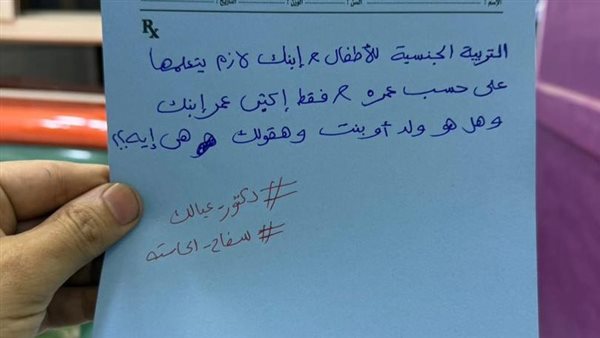 الاسم : السن : الوزن : التاريخ :
Rx
التربية الجنسية للأطفال إبنك لازم يتعلمها
على حسب عمره فقط إكتبى عمر إبنك
وهل هو ولد أو بنت وهقولك هى إيه؟؟
#دكتور_عيالك
#سفاح_الحاسته